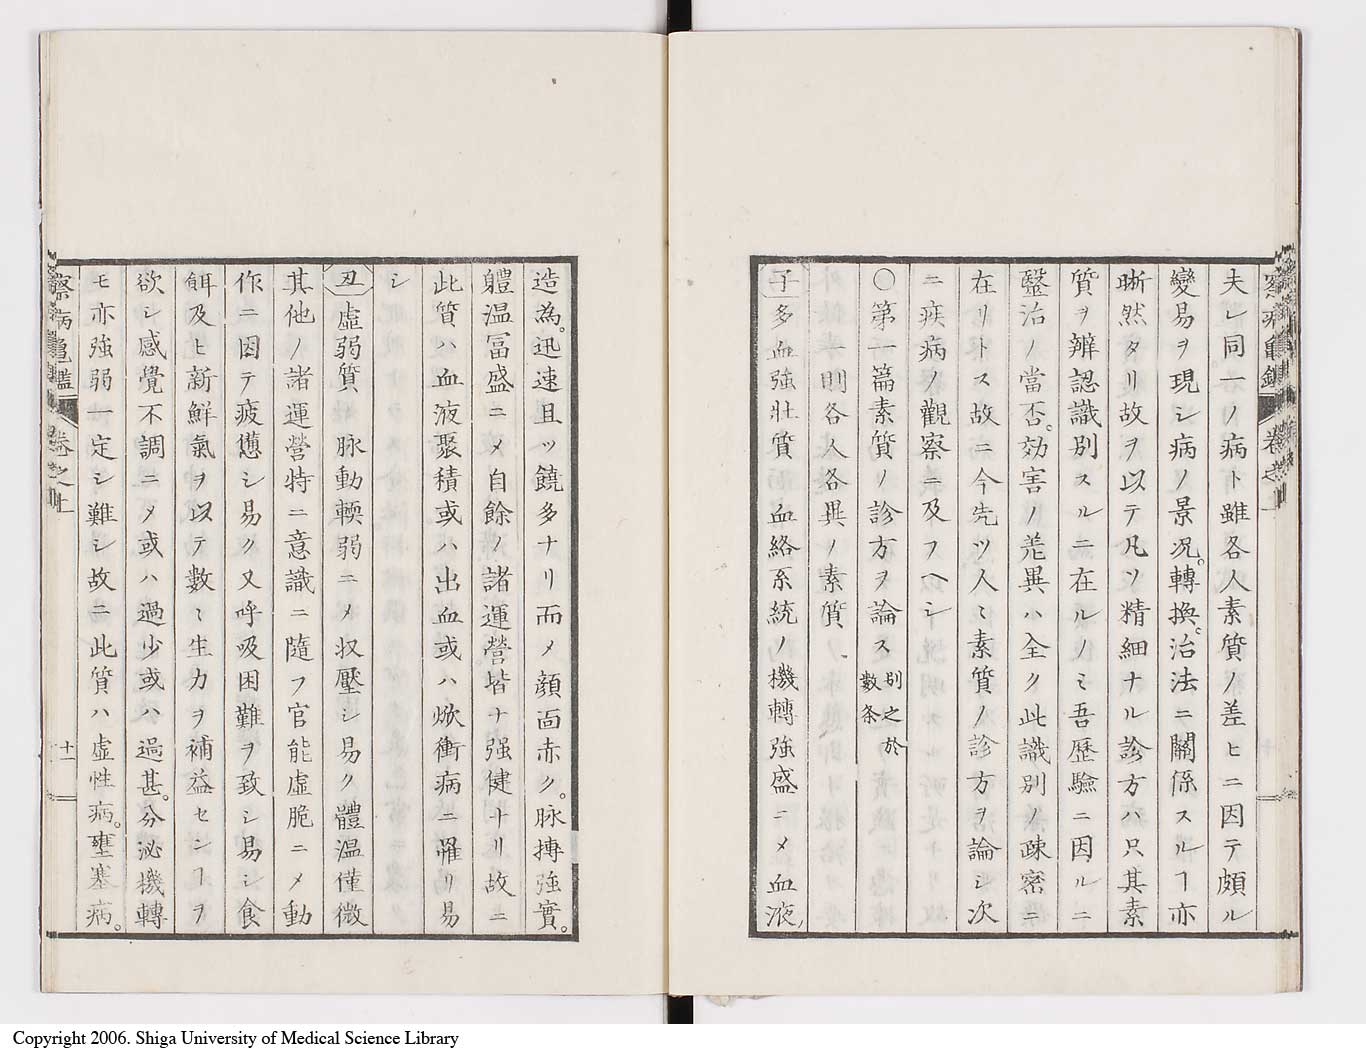 夫レ同一ノ病ト雖各人素質ノ差ヒニ因テ頗ル
變易ヲ現シ病ノ景况。轉換。治法ニ關係スルヿ亦
晰然タリ故ヲ以テ凡ソ精細ナル診方ハ只其素
質ヲ辨認識別スルニ在ルノミ吾歷驗ニ因ルニ
毉治ノ當否。効害ノ差異ハ全ク此識別ノ疎密ニ
在リトス故ニ今先ツ人〻素質ノ診方ヲ論シ次
ニ疾病ノ觀察ニ及フヘシ
〇第一篇素質ノ診方ヲ論ス 別之於
數条
一則各人各異ノ素質
子多血強壯質 血絡系統ノ機轉強盛ニメ血液
造為。迅速且ツ饒多ナリ而メ顔面赤ク。脉摶強實。
軆温冨盛ニメ自餘ノ諸運營。皆ナ强健ナリ故ニ
此質ハ血液聚積或ハ出血或ハ焮衝病ニ罹リ易
シ
丑虛弱質 脉動輭弱ニメ収壓シ易ク體温僅微
其他ノ諸運營特ニ意識ニ隨フ官能虛脆ニメ動
作ニ因テ疲憊シ易ク又呼吸困難ヲ致シ易シ食
餌及ヒ新鮮氣ヲ以テ數〻生力ヲ補益センヿヲ
欲シ感覺不調ニメ或ハ過少或ハ過甚。分泌機轉
モ亦強弱一定シ難シ故ニ此質ハ虛性病。壅塞病。
察病龜鑑 卷之上 十一
Copyright 2006. Shiga University of Medical Science Library